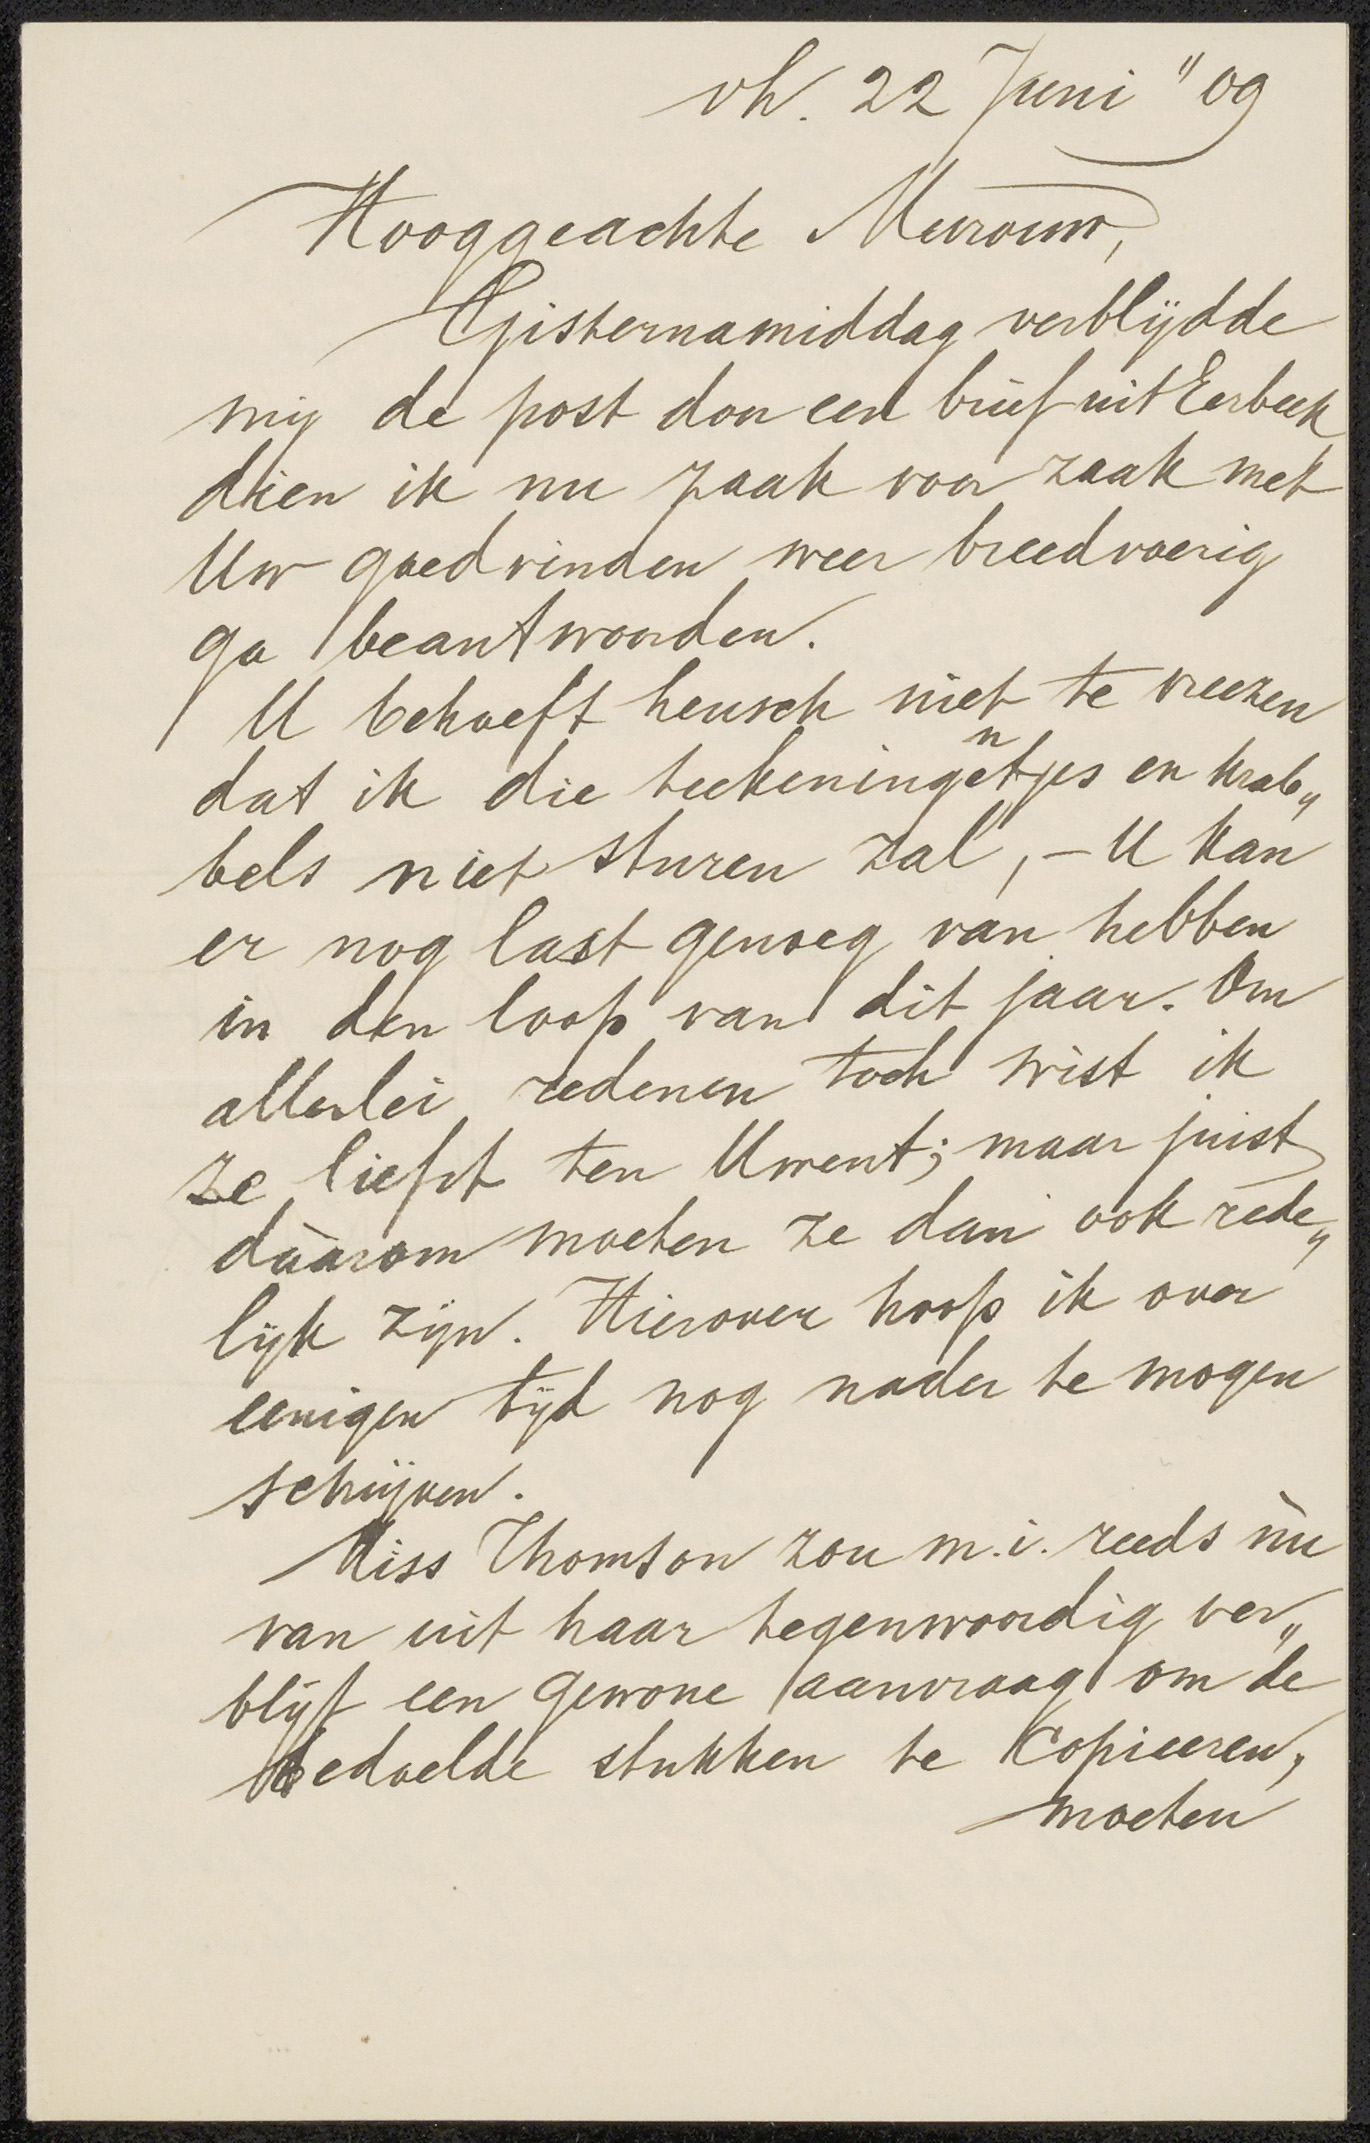 vh. 22 Juni "09
Hooggeachte Mevrouw,
Gisternamiddag verblijdde
mij de post door een brief uit Eerbeek
dien ik nu zaak voor zaak met
Uw goedvinden weer breedvoerig
ga beantwoorden.
U behoeft heusch niet te vreezen
dat ik die teekeningentjes en krab„
bels niet sturen zal, – U kan
er nog last genoeg van hebben
in den loop van dit jaar. Om
allerlei redenen toch wist ik
ze liefst ten Uwent; maar juist
dàarom moeten ze dan ook rede„
lijk zijn. Hierover hoop ik over
eenigen tijd nog nader te mogen
schrijven.
Miss Thomson zou m.i. reeds nù
van uit haar tegenwoordig ver„
blijf een gewone aanvraag om de
bedoelde stukken te copieeren,
moeten